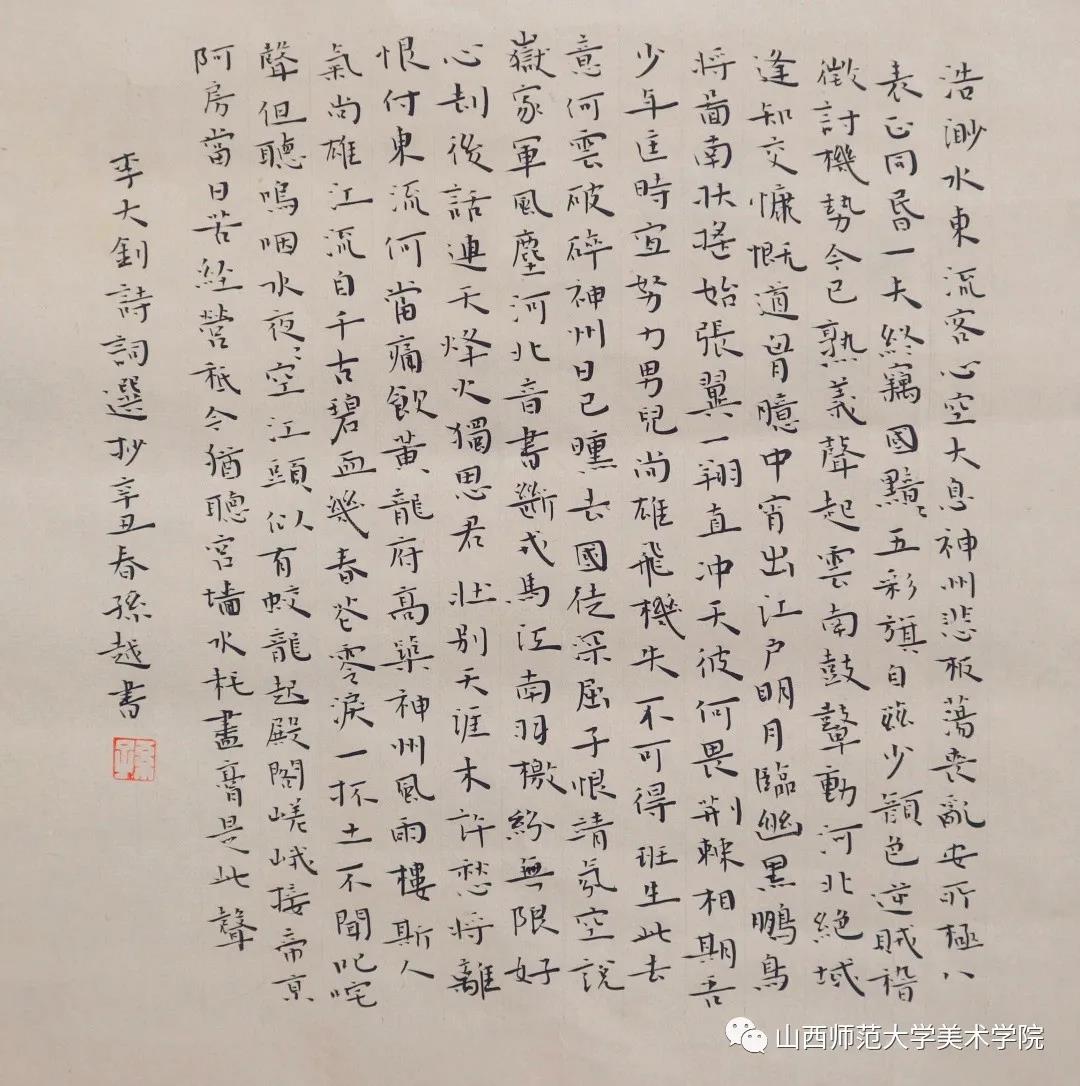 浩渺水東流客心空大息神州悲板蕩喪亂安所極八
表正同昏一夫終竊國黯〻五彩旗自茲少顏色逆賊稽
徵討機勢今已熟義聲起雲南鼓鼙動河北絕域
逢知交慷慨道胷臆中宵出江戶明月臨幽黑鵬鳥
將圖南扶搖始張翼一翔直沖天彼何畏荆棘相期吾
少年匡時宜努力男兒尚雄飛機失不可得班生此去
意何雲破碎神州日已曛去國徒深屈子恨靖氛空說
嶽家軍風塵河北音書斷戎馬江南羽檄紛無限好
心刦後話連天烽火獨思君壯別天涯未許愁將離
恨付東流何當痛飲黃龍府高築神州風雨樓斯人
氣尚雄江流自千古碧血幾春花零淚一抔土不聞叱咤
聲但聽嗚咽水夜〻空江頭似有蛟龍起殿閣嵯峨接帝京
阿房當日苦經營秖今猶聽宮墻水耗盡膏是此聲
李大釗詩詞選抄辛丑春孫越書
山西师范大学美术学院